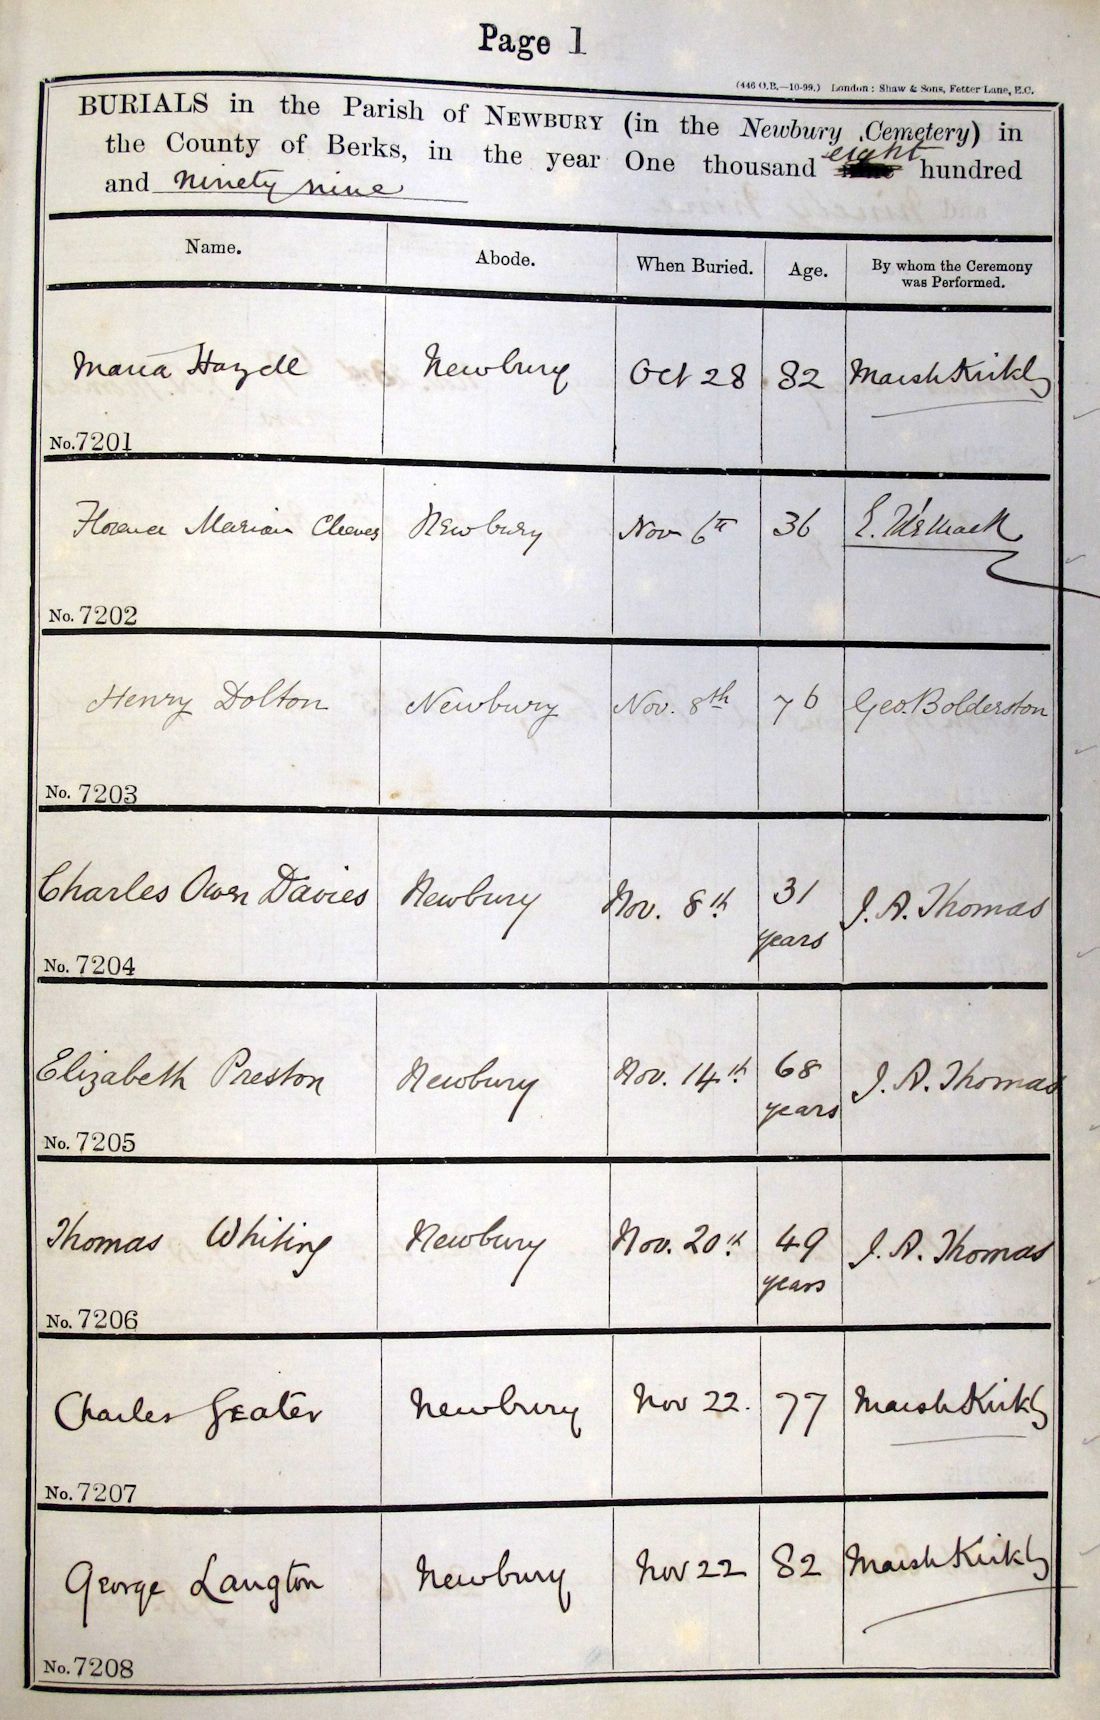 Page 1
(446 O.B.—10-99.) London: Shaw & Sons, Fetter Lane, E.C.
BURIALS in the Parish of NEWBURY (in the Newbury Cemetery) in
the County of Berks, in the year One thousand eight hundred
and ninety nine
Name. Abode. When Buried. Age. By whom the Ceremony
was Performed.
Maria Hazell Newbury Oct 28 82 Marsh Kirkby
No. 7201
Florence Marian Cleeves Newbury Nov 6th 36 E.
No. 7202
Henry Dolton Newbury Nov. 8th 76 Geo. Bolderston
No. 7203
Charles Owen Davies Newbury Nov. 8th 31 J. A. Thomas
years
No. 7204
Elizabeth Preston Newbury Nov. 14th 68 J. A. Thomas
years
No. 7205
Thomas Whiting Newbury Nov. 20th 49 J. A. Thomas
years
No. 7206
Charles Geater Newbury Nov 22. 77 Marsh Kirkby
No. 7207
George Langton Newbury Nov 22 82 Marsh Kirkby
No. 7208